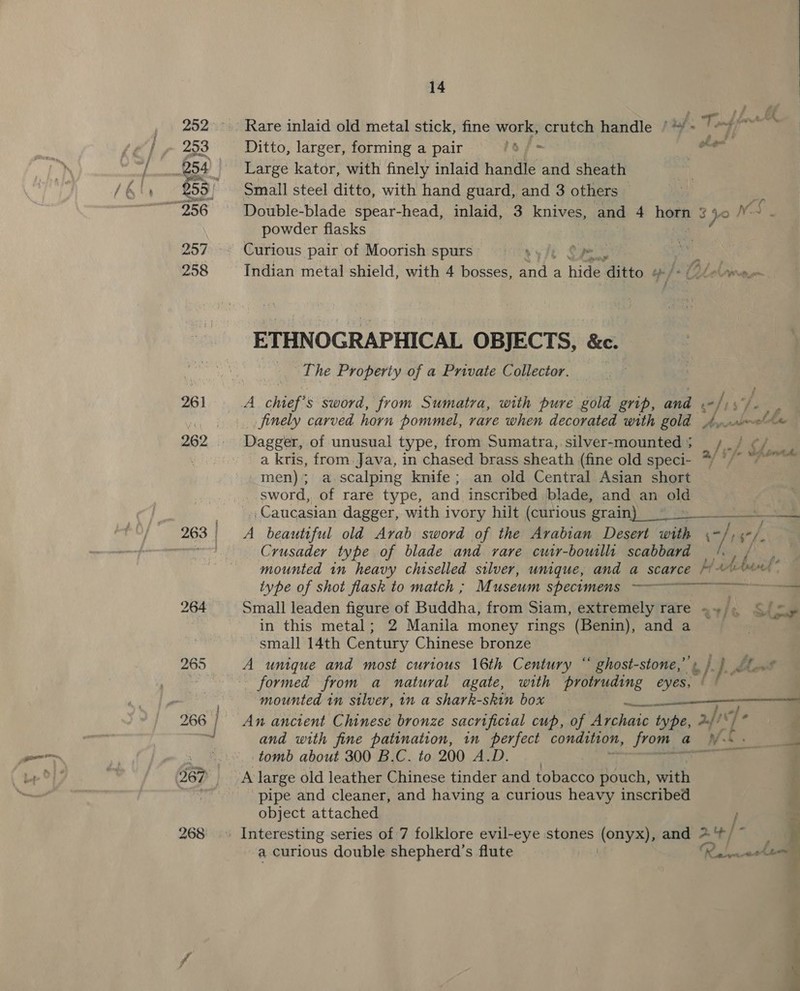 14
252 Rare inlaid old metal stick, fine work, crutch handle
253 Ditto, larger, forming a pair
254 Large kator, with finely inlaid handle and sheath
255 Small steel ditto, with hand guard, and 3 others
256 Double-blade spear-head, inlaid, 3 knives, and 4 horn
powder flasks
257 Curious pair of Moorish spurs
258 Indian metal shield, with 4 bosses, and a hide ditto
ETHNOGRAPHICAL OBJECTS, &c.
The Property of a Private Collector.
261 A chief's sword, from Sumatra, with pure gold grip, and
finely carved horn pommel, rare when decorated with gold
262 Dagger, of unusual type, from Sumatra, silver-mounted ;
a kris, from Java, in chased brass sheath (fine old speci-
men) ; a scalping knife ; an old Central Asian short
sword, of rare type, and inscribed blade, and an old
Caucasian dagger, with ivory hilt (curious grain)
263 A beautiful old Arab sword of the Arabian Desert with
Crusader type of blade and rare cuir-bouilli scabbard
mounted in heavy chiselled silver, unique, and a scarce
type of shot flask to match ; Museum specimens
264 Small leaden figure of Buddha, from Siam, extremely rare
in this metal ; 2 Manila money rings (Benin), and a
small 14th Century Chinese bronze
265 A unique and most curious 16th Century “ ghost-stone,”
formed from a natural agate, with protruding eyes,
mounted in silver, in a shark-skin box
266 An ancient Chinese bronze sacrificial cup, of Archaic type,
and with fine patination, in perfect condition, from a
tomb about 300 B.C. to 200 A.D.
267 A large old leather Chinese tinder and tobacco pouch, with
pipe and cleaner, and having a curious heavy inscribed
object attached
268 Interesting series of 7 folklore evil-eye stones (onyx), and
a curious double shepherd's flute